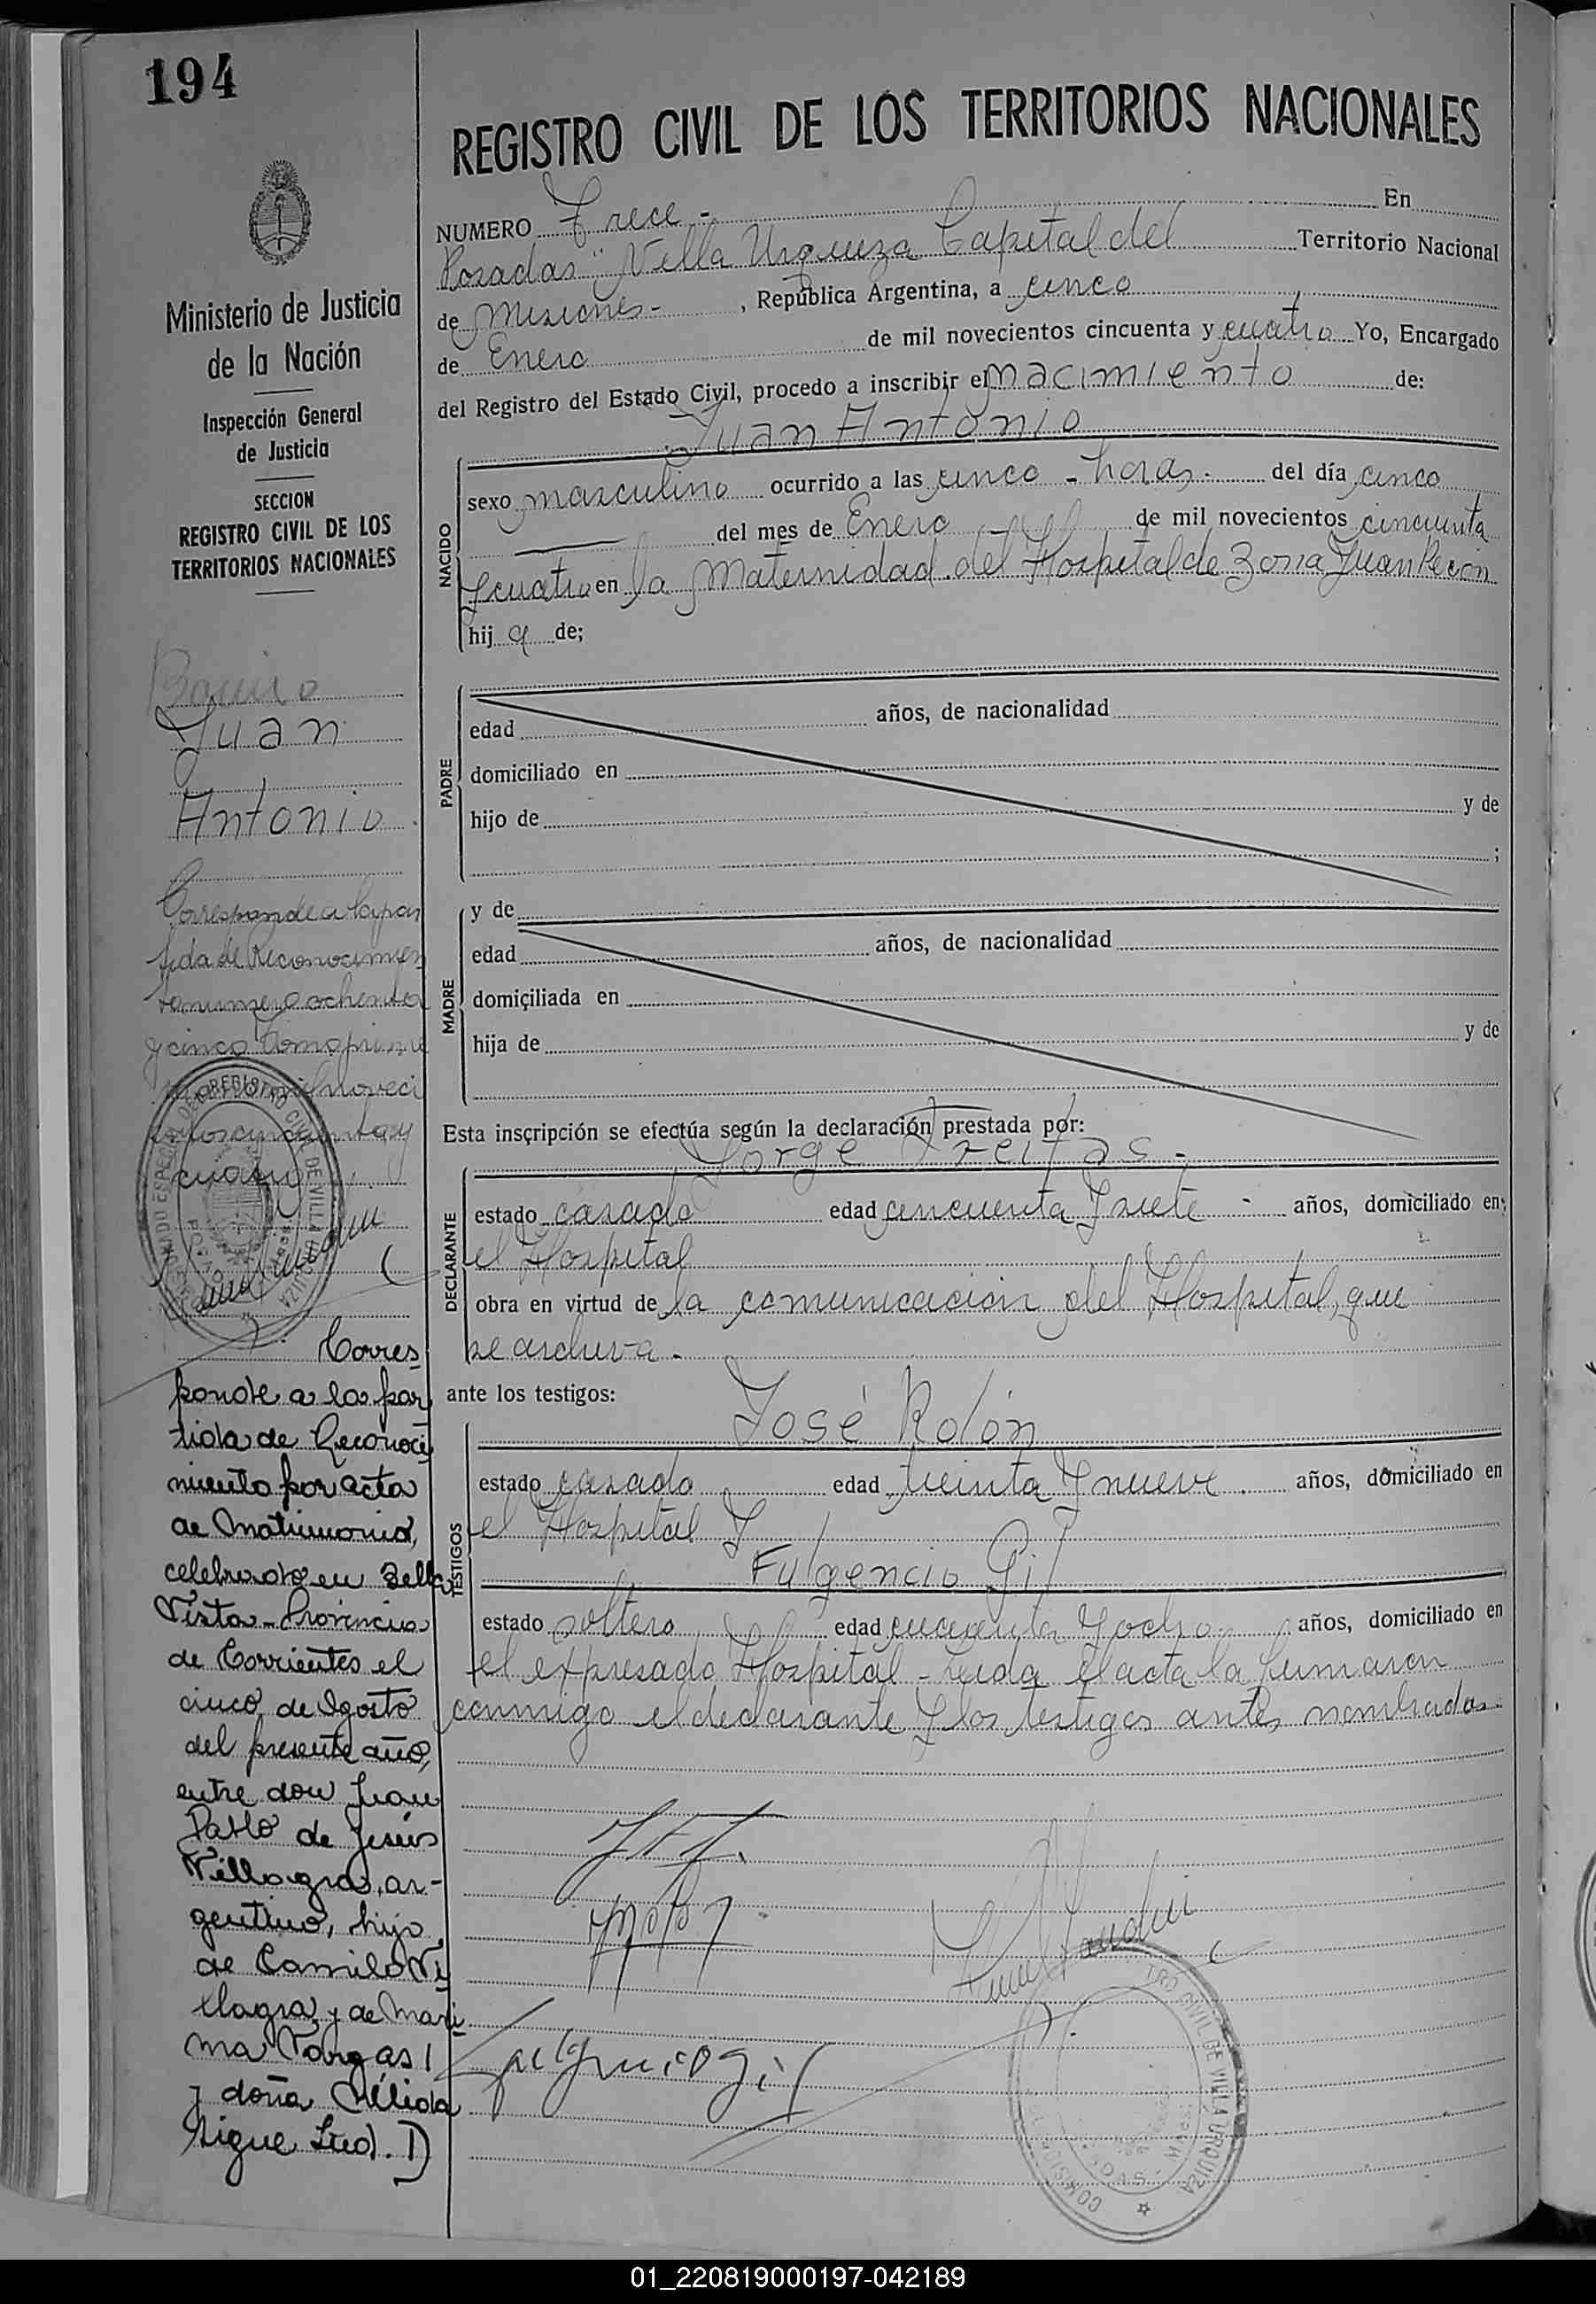 194
Ministerio de Justicia
de la Nación
Inspección General
de Justicia
SECCION
REGISTRO CIVIL DE LOS
TERRITORIOS NACIONALES
Juan
Antonio
Corresponde a la par
tida de Reconocimien
to numero ochenta
y cinco Tomo prime
mil noveci
entos cincuenta y
cuatro
Corres
ponde a la par
tida de Reconoci
miento por acta
de Matrimonio,
celebrado en Bella
Vista - Provincia
de Corrientes el
cinco de Agosto
del presente año,
entre don Juan
Pablo de Jesús
Villagra, ar-
gentino, hijo
de Camilo Vi
llagra y de Maxi
ma Vargas
y doña Nélida
sigue Ind. D
REGISTRO CIVIL DE LOS TERRITORIOS NACIONALES
NUMERO Trece - En
Posadas "Villa Urquiza Capital del Territorio Nacional
de Misiones - , República Argentina, a cinco
de Enero de mil novecientos cincuenta y cuatro Yo, Encargado
del Registro del Estado Civil, procedo a inscribir el nacimiento de:
Juan Antonio
NACIDO
sexo masculino ocurrido a las cinco - horas - del día cinco
del mes de Enero de mil novecientos cincuenta
y cuatro en la Maternidad del Hospital de Zona Juan Perón
hij o de;
PADRE
edad años, de nacionalidad
domiciliado en
hijo de y de
;
MADRE
y de
edad años, de nacionalidad
domiciliada en
hija de y de
Esta inscripción se efectúa según la declaración prestada por:
Jorge Freitas -
DECLARANTE
estado casado edad cincuenta y siete - años, domiciliado en:
el Hospital
obra en virtud de la comunicación del Hospital, que
se archiva -
ante los testigos:
José Rolón
TESTIGOS
estado casado edad treinta y nueve . años, domiciliado en
el Hospital y
Fulgencio Gil
estado soltero edad cuarenta y ocho años, domiciliado en
el expresado Hospital - Leida el acta la firmaron
conmigo el declarante y los testigos antes nombrados -
Fulgencio Gil
01_220819000197-042189